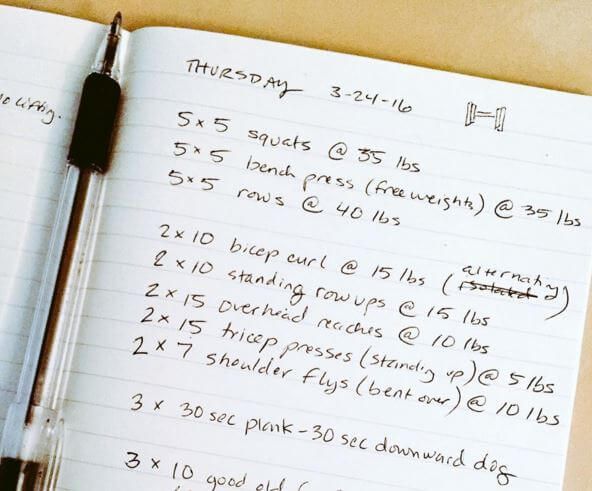 lifting.
THURSDAY 3-24-16
5x5 squats @ 35 lbs
5x5 bench press (free weights) @ 35 lbs
5x5 rows @ 40 lbs
2x10 bicep curl @ 15 lbs (alternating isolated)
2x10 standing row ups @ 15 lbs
2x15 overhead reaches @ 10 lbs
2x15 tricep presses (standing up) @ 5 lbs
2x7 shoulder flys (bent over) @ 10 lbs
3 x 30 sec plank - 30 sec downward dog
3 x 10 good old (